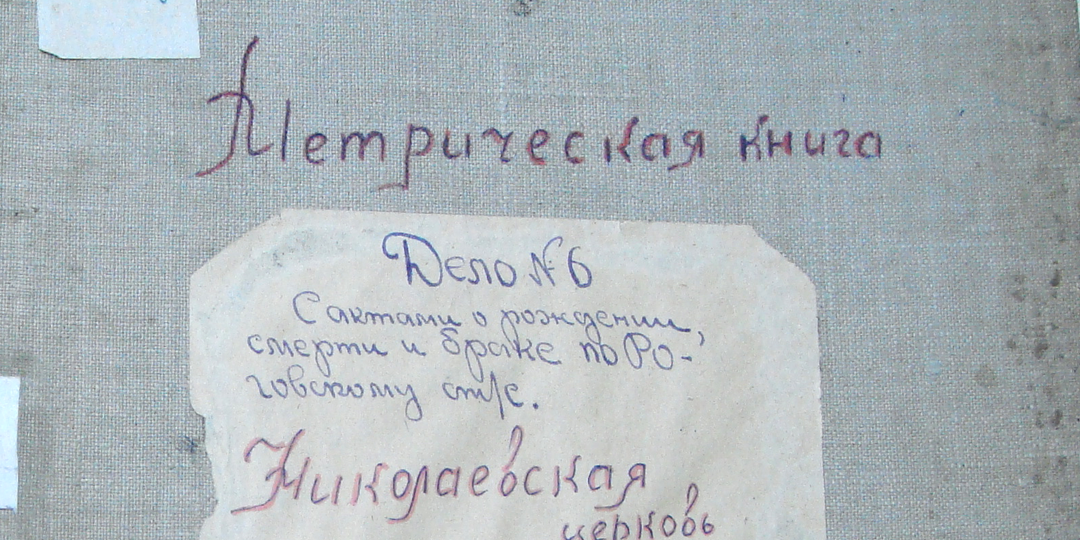 Метрическая книга
Дело № 6
С актами о рождении,
смерти и браке по Ро-
говскому ст/с.
Николаевская
церковь